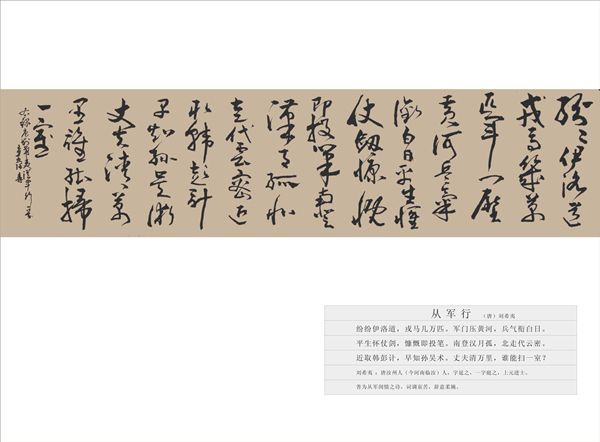 纷〻伊洛道
戎馬幾萬
匹軍門壓
黄河兵氣
衔白日平生懷
仗劍慷慨
即投筆南登
漢月孤北
走代雲密近
取韓彭計
早知孫吳術
丈夫清萬
里誰能掃
一室
从军行 （唐）刘希夷
纷纷伊洛道，戎马几万匹。军门压黄河，兵气衔白日。
平生怀仗剑，慷慨即投笔。南登汉月孤，北走代云密。
近取韩彭计，早知孙吴术。丈夫清万里，谁能扫一室？
刘希夷 ：唐汝州人（今河南临汝）人，字延之、一字庭之，上元进士。
善为从军闺情之诗，词调哀苦，辞意柔